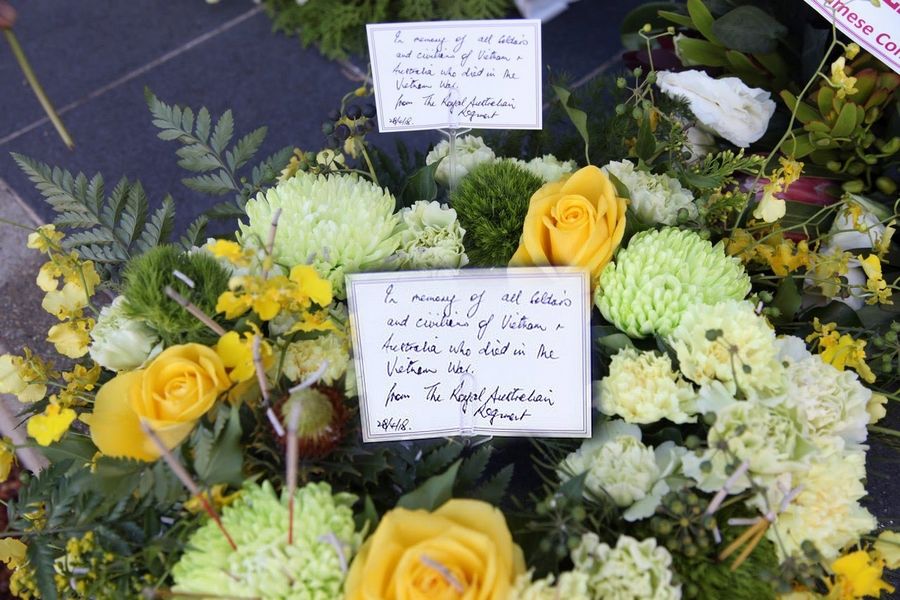 In memory of all Soldiers
and civilians of Vietnam +
Australia who died in the
Vietnam War.
from The Royal Australian
Regment
28/4/18.
nese Col
In memory of all Soldiers
and civilians of Vietnam +
Australia who died in the
Vietnam War.
from The Royal Australian
Regment
28/4/18.